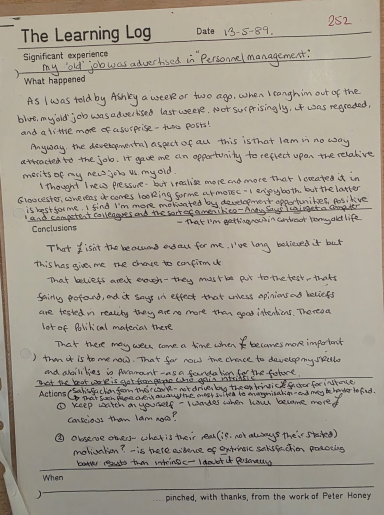 252
The Learning Log
Date 13-5-89.
Significant experience
My 'old' job was advertised in "Personnel management".
What happened
As I was told by Ashky a week or two ago, when I rang him out of the
blue, my old job was advertised last week. Not surprisingly, it was regraded,
and a little more of a surprise - two posts!
Anyway, the developmental aspect of all this is that I am in no way
attracted to the job. It gave me an opportunity to reflect upon the relative
merits of my new job vs my old.
I thought I new pressure - but I realise more and more that I created it in
Gloucester, whereas it comes looking for me at - I enjoy both but the latter
is best for me. I find I'm more motivated by development opportunities, positive
and competent colleagues and the sort of
- that I'm getting now in contrast to my old life.
Conclusions
That £ isn't the be all and end all for me. I've long believed it but
this has give me the chance to confirm it
That beliefs aren't enough - they must be put to the test - that's
fairly pofound, and it says in effect that unless opinions and beliefs
are tested in reality they are no more than good intentions. Theres a
lot of Political material there
That there may well come a time when £ becomes more important
than it is to me now. That for now the chance to develop my skills
and abilities is paramount - as a foundation for the future.
That the best work is got from people who gain intrinsic
Actions
satisfaction from their work - not driven by the extrinsic £ factor for instance.
that such people are
① Keep watch on yourself - I wonder when I will become more £
conscious than I am now?
② Observe others - what is their real (ie. not always their stated)
motivation? - is there evidence of extrinsic satisfaction producing
better results than intrinsic - I doubt it personally
When
.... pinched, with thanks, from the work of Peter Honey